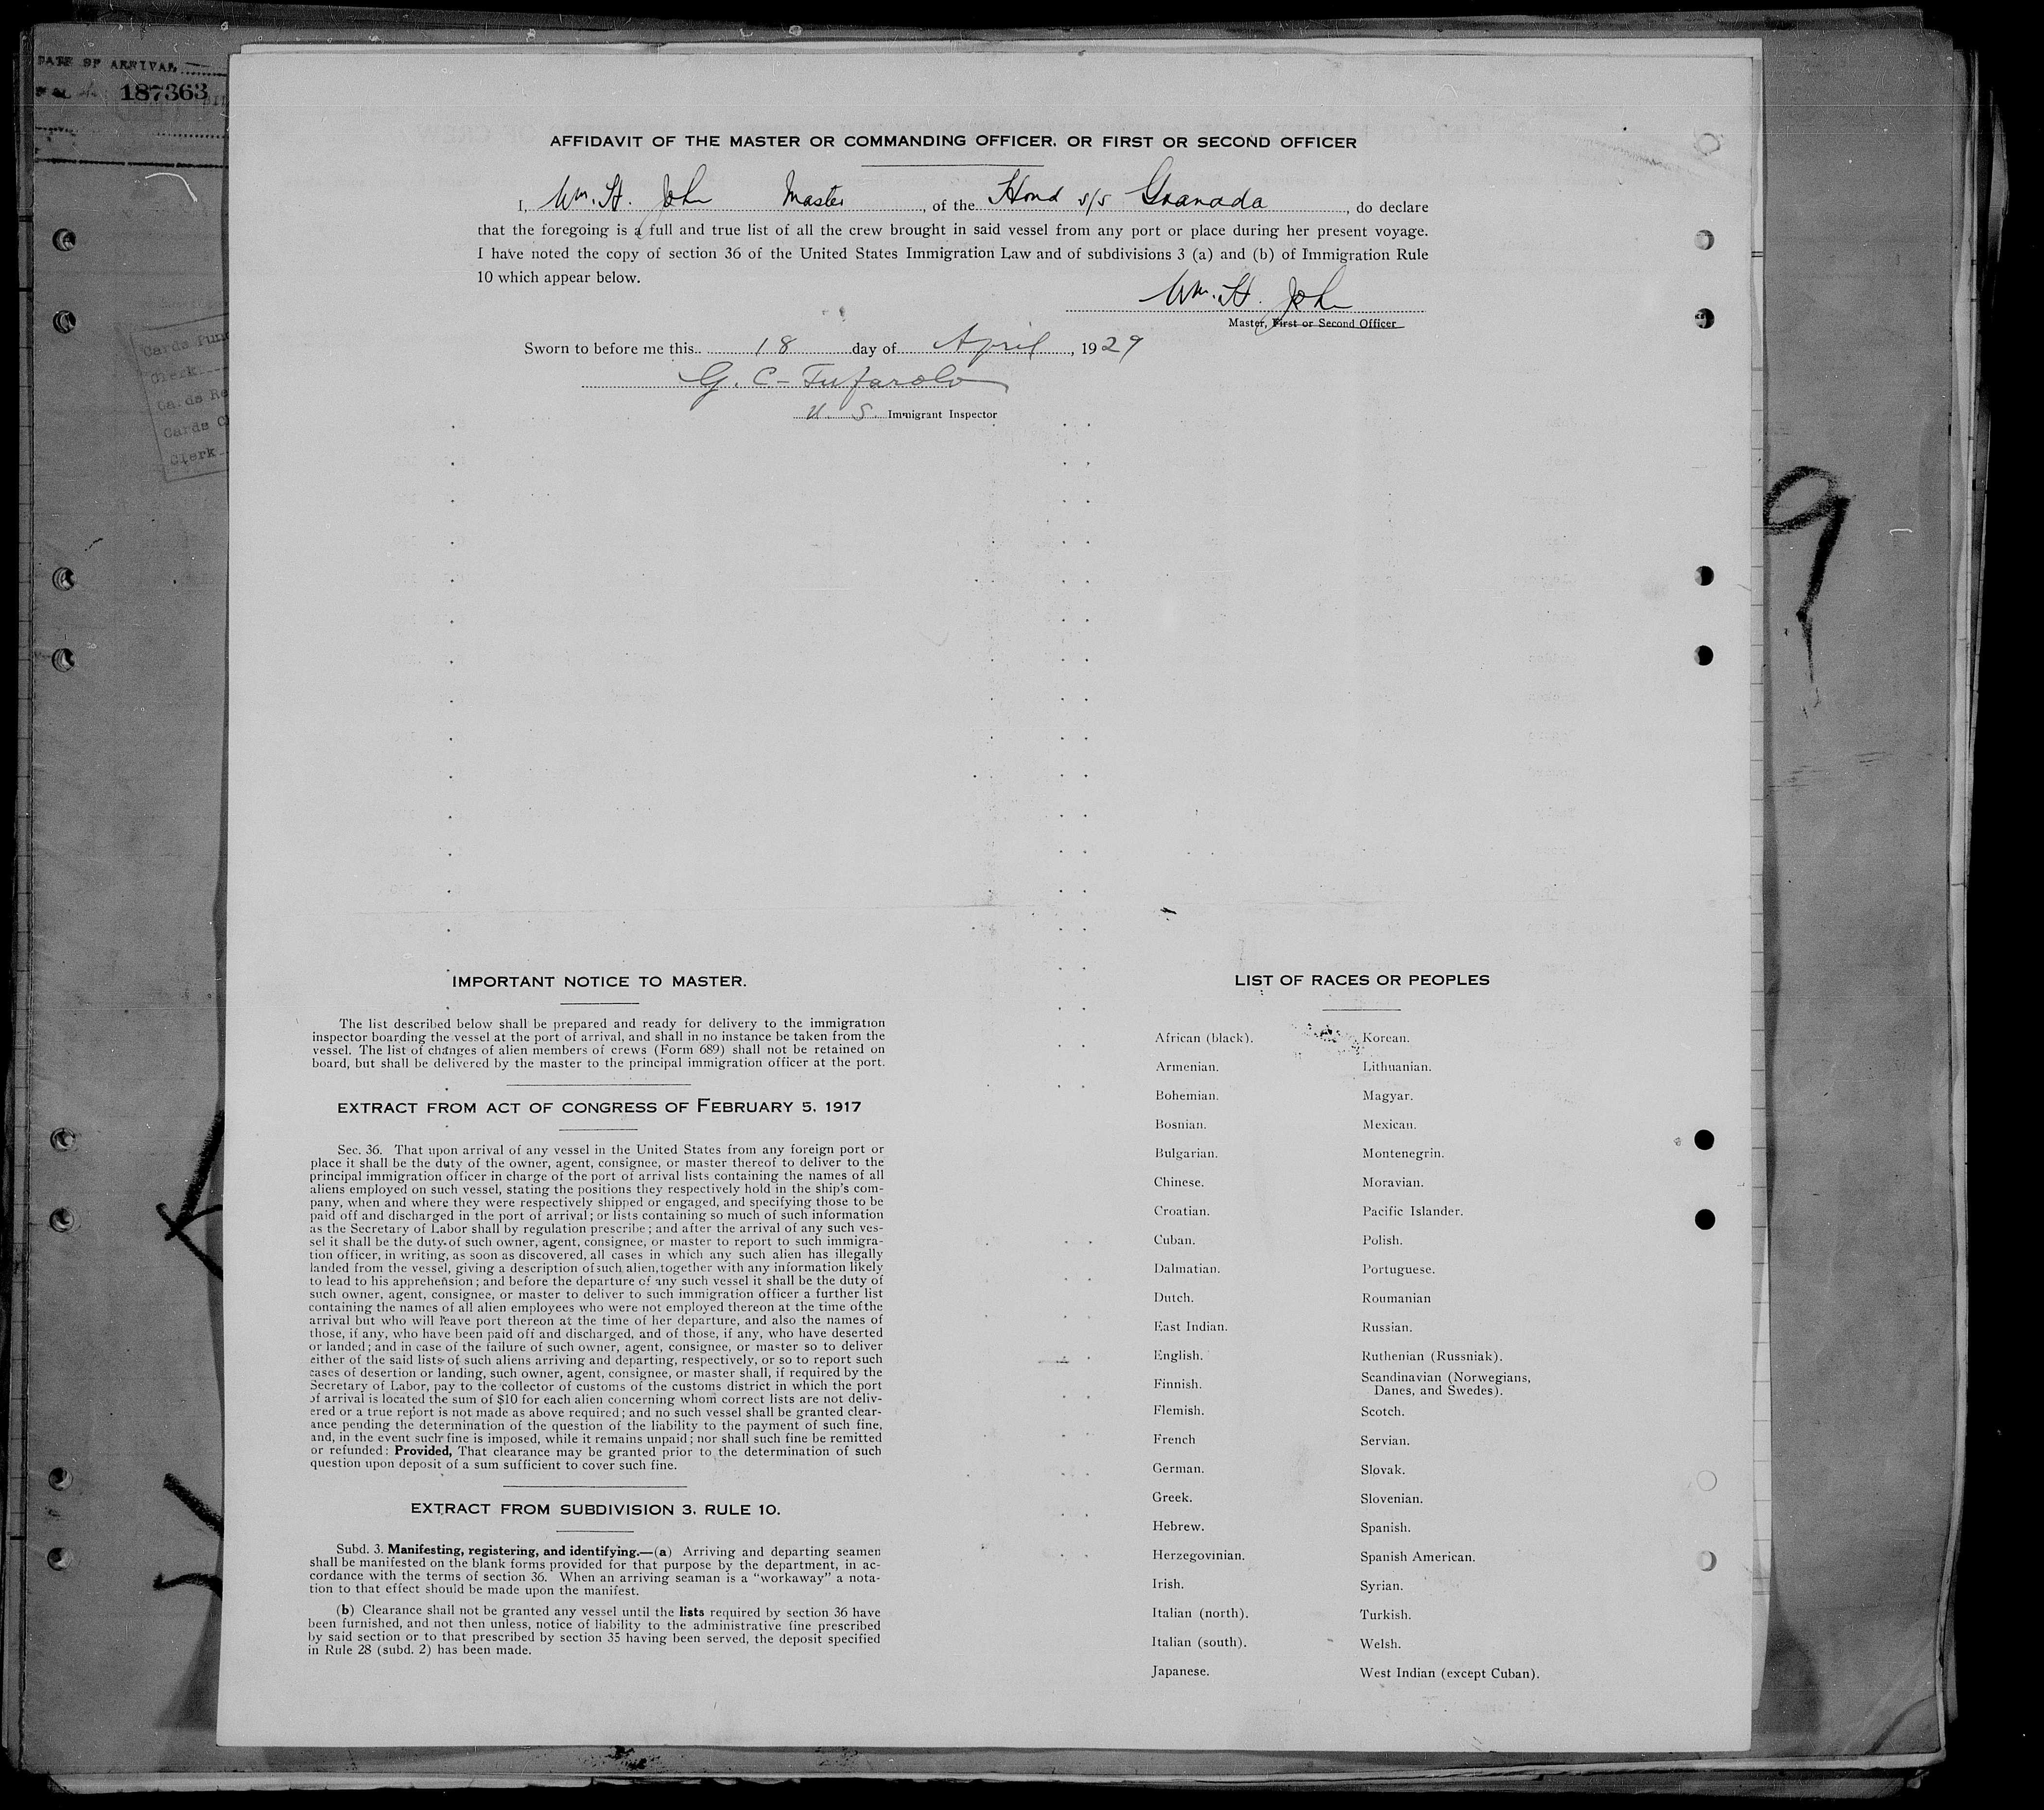 DATE OF ARRIVAL
187363
Cards Pun
Clerk
Cards Re
Cards C
Clerk
9
AFFIDAVIT OF THE MASTER OR COMMANDING OFFICER, OR FIRST OR SECOND OFFICER
I, Wm. H. John Master, of the Hond s/s Granada, do declare
that the foregoing is a full and true list of all the crew brought in said vessel from any port or place during her present voyage.
I have noted the copy of section 36 of the United States Immigration Law and of subdivisions 3 (a) and (b) of Immigration Rule
10 which appear below.
Wm. H. John
Master, First or Second Officer
Sworn to before me this 18 day of April, 1929
G. C. Tufarolo
U. S. Immigrant Inspector
IMPORTANT NOTICE TO MASTER.
The list described below shall be prepared and ready for delivery to the immigration
inspector boarding the vessel at the port of arrival, and shall in no instance be taken from the
vessel. The list of changes of alien members of crews (Form 689) shall not be retained on
board, but shall be delivered by the master to the principal immigration officer at the port.
EXTRACT FROM ACT OF CONGRESS OF FEBRUARY 5, 1917
Sec. 36. That upon arrival of any vessel in the United States from any foreign port or
place it shall be the duty of the owner, agent, consignee, or master thereof to deliver to the
principal immigration officer in charge of the port of arrival lists containing the names of all
aliens employed on such vessel, stating the positions they respectively hold in the ship's com-
pany, when and where they were respectively shipped or engaged, and specifying those to be
paid off and discharged in the port of arrival; or lists containing so much of such information
as the Secretary of Labor shall by regulation prescribe; and after the arrival of any such ves-
sel it shall be the duty of such owner, agent, consignee, or master to report to such immigra-
tion officer, in writing, as soon as discovered, all cases in which any such alien has illegally
landed from the vessel, giving a description of such alien, together with any information likely
to lead to his apprehension; and before the departure of any such vessel it shall be the duty of
such owner, agent, consignee, or master to deliver to such immigration officer a further list
containing the names of all alien employees who were not employed thereon at the time of the
arrival but who will leave port thereon at the time of her departure, and also the names of
those, if any, who have been paid off and discharged, and of those, if any, who have deserted
or landed; and in case of the failure of such owner, agent, consignee, or master so to deliver
either of the said lists of such aliens arriving and departing, respectively, or so to report such
cases of desertion or landing, such owner, agent, consignee, or master shall, if required by the
Secretary of Labor, pay to the collector of customs of the customs district in which the port
of arrival is located the sum of $10 for each alien concerning whom correct lists are not deliv-
ered or a true report is not made as above required; and no such vessel shall be granted clear-
ance pending the determination of the question of the liability to the payment of such fine,
and, in the event such fine is imposed, while it remains unpaid; nor shall such fine be remitted
or refunded: Provided, That clearance may be granted prior to the determination of such
question upon deposit of a sum sufficient to cover such fine.
EXTRACT FROM SUBDIVISION 3, RULE 10.
Subd. 3. Manifesting, registering, and identifying.—(a) Arriving and departing seamen
shall be manifested on the blank forms provided for that purpose by the department, in ac-
cordance with the terms of section 36. When an arriving seaman is a "workaway" a nota-
tion to that effect should be made upon the manifest.
(b) Clearance shall not be granted any vessel until the lists required by section 36 have
been furnished, and not then unless, notice of liability to the administrative fine prescribed
by said section or to that prescribed by section 35 having been served, the deposit specified
in Rule 28 (subd. 2) has been made.
LIST OF RACES OR PEOPLES
African (black).
Armenian.
Bohemian.
Bosnian.
Bulgarian.
Chinese.
Croatian.
Cuban.
Dalmatian.
Dutch.
East Indian.
English.
Finnish.
Flemish.
French
German.
Greek.
Hebrew.
Herzegovinian.
Irish.
Italian (north).
Italian (south).
Japanese.
Korean.
Lithuanian.
Magyar.
Mexican.
Montenegrin.
Moravian.
Pacific Islander.
Polish.
Portuguese.
Roumanian
Russian.
Ruthenian (Russniak).
Scandinavian (Norwegians,
Danes, and Swedes).
Scotch.
Servian.
Slovak.
Slovenian.
Spanish.
Spanish American.
Syrian.
Turkish.
Welsh.
West Indian (except Cuban).